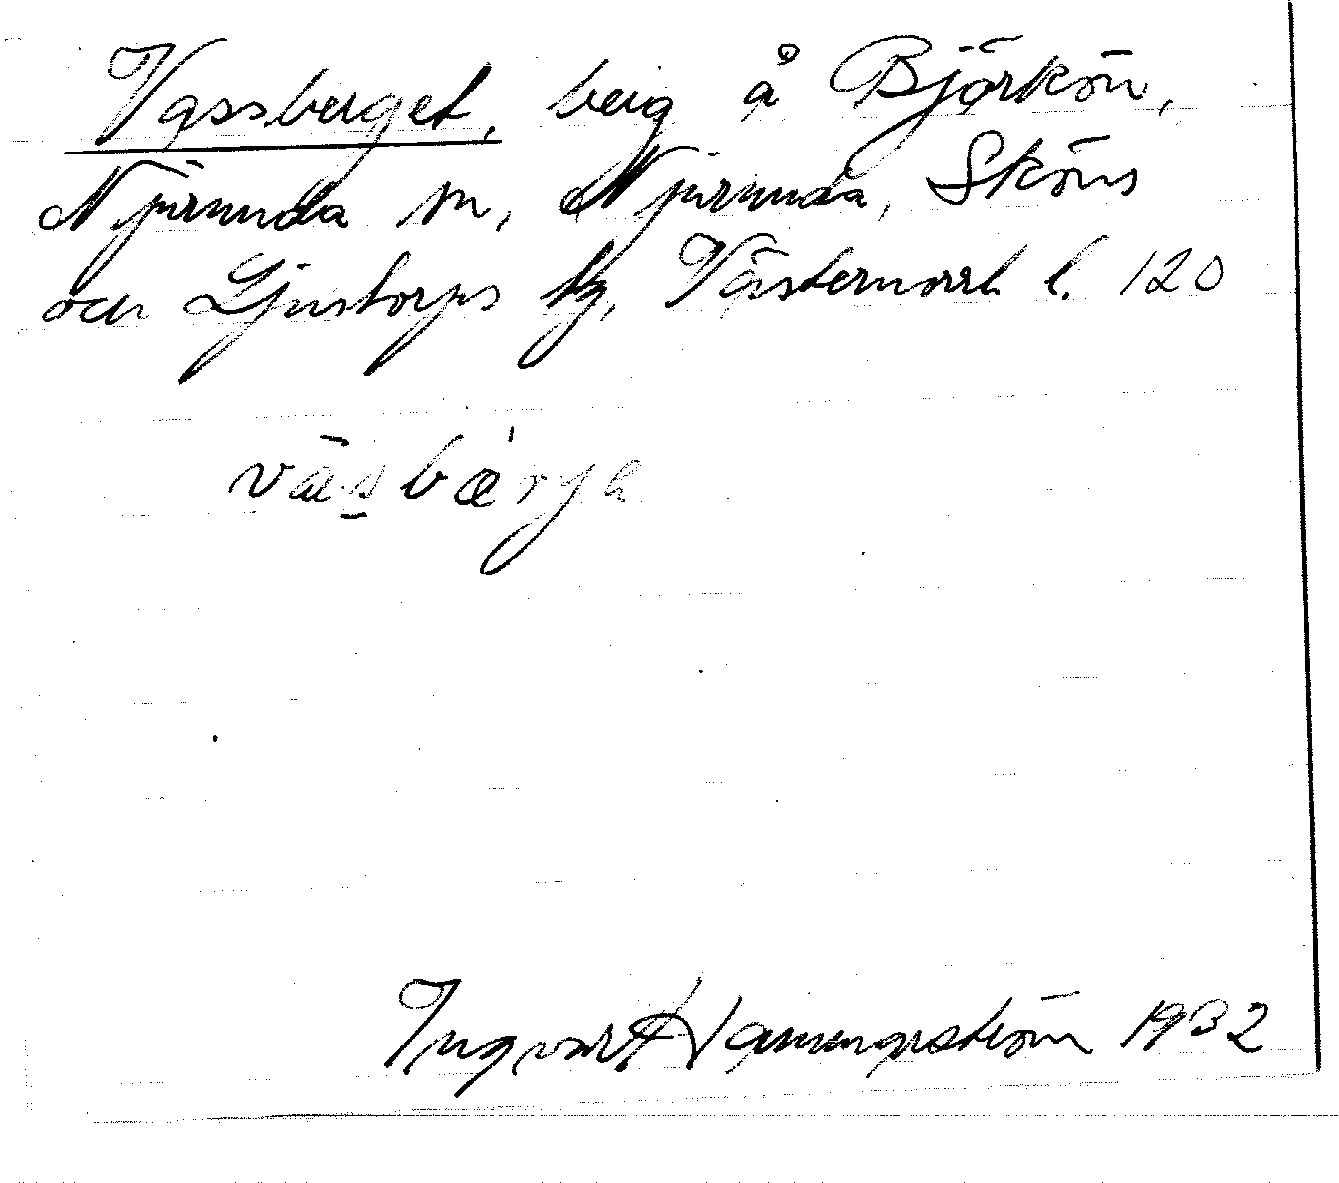 Vassberget, berg å Björkön,
Njurunda sn, Njurunda, Sköns
och Ljustorps tg, Västernorrl l. 120
Ingvar Hammarström 1932